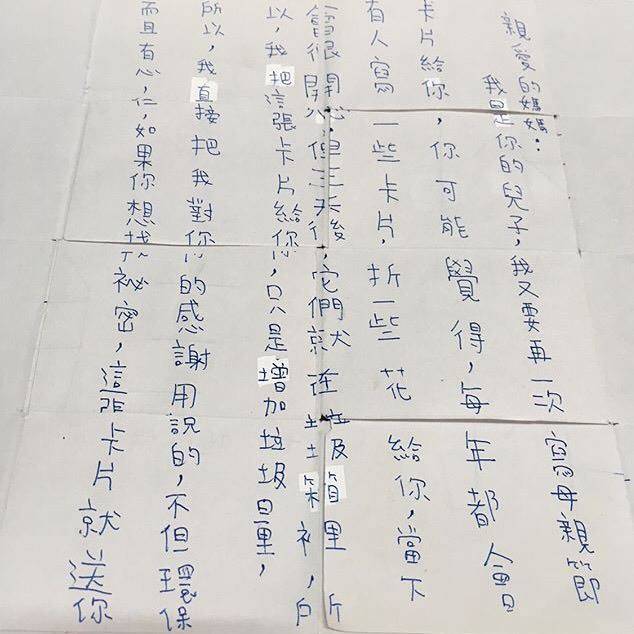 親愛的媽媽:
我是你的兒子,我又要再一次寫母親節
卡片給你,你可能覺得,每年都會
有人寫一些卡片,折一些花給你,當下
會很開心,但三天後,它們就在垃圾筒裡,所
以,我把這張卡片給你,只是增加垃圾量,
所以,我直接把我對你的感謝用說的,不但環保
而且有心,仁,如果你想找祕密,這張卡片就送你